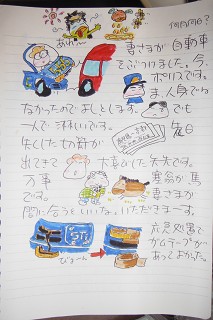 あれ〜
妻さまが自動車
でぶつけました。今、
ポリスです。
ま、人身でね
なかったのでよしとします。でも
一人で淋いです。先日
失くした切符が
出てきて大喜びした夫です。
万事塞翁が馬
です。妻さまが
間に合うといいな。いただきまーす。
応急処置で
ガムテープが
あってよかった。
びよーん